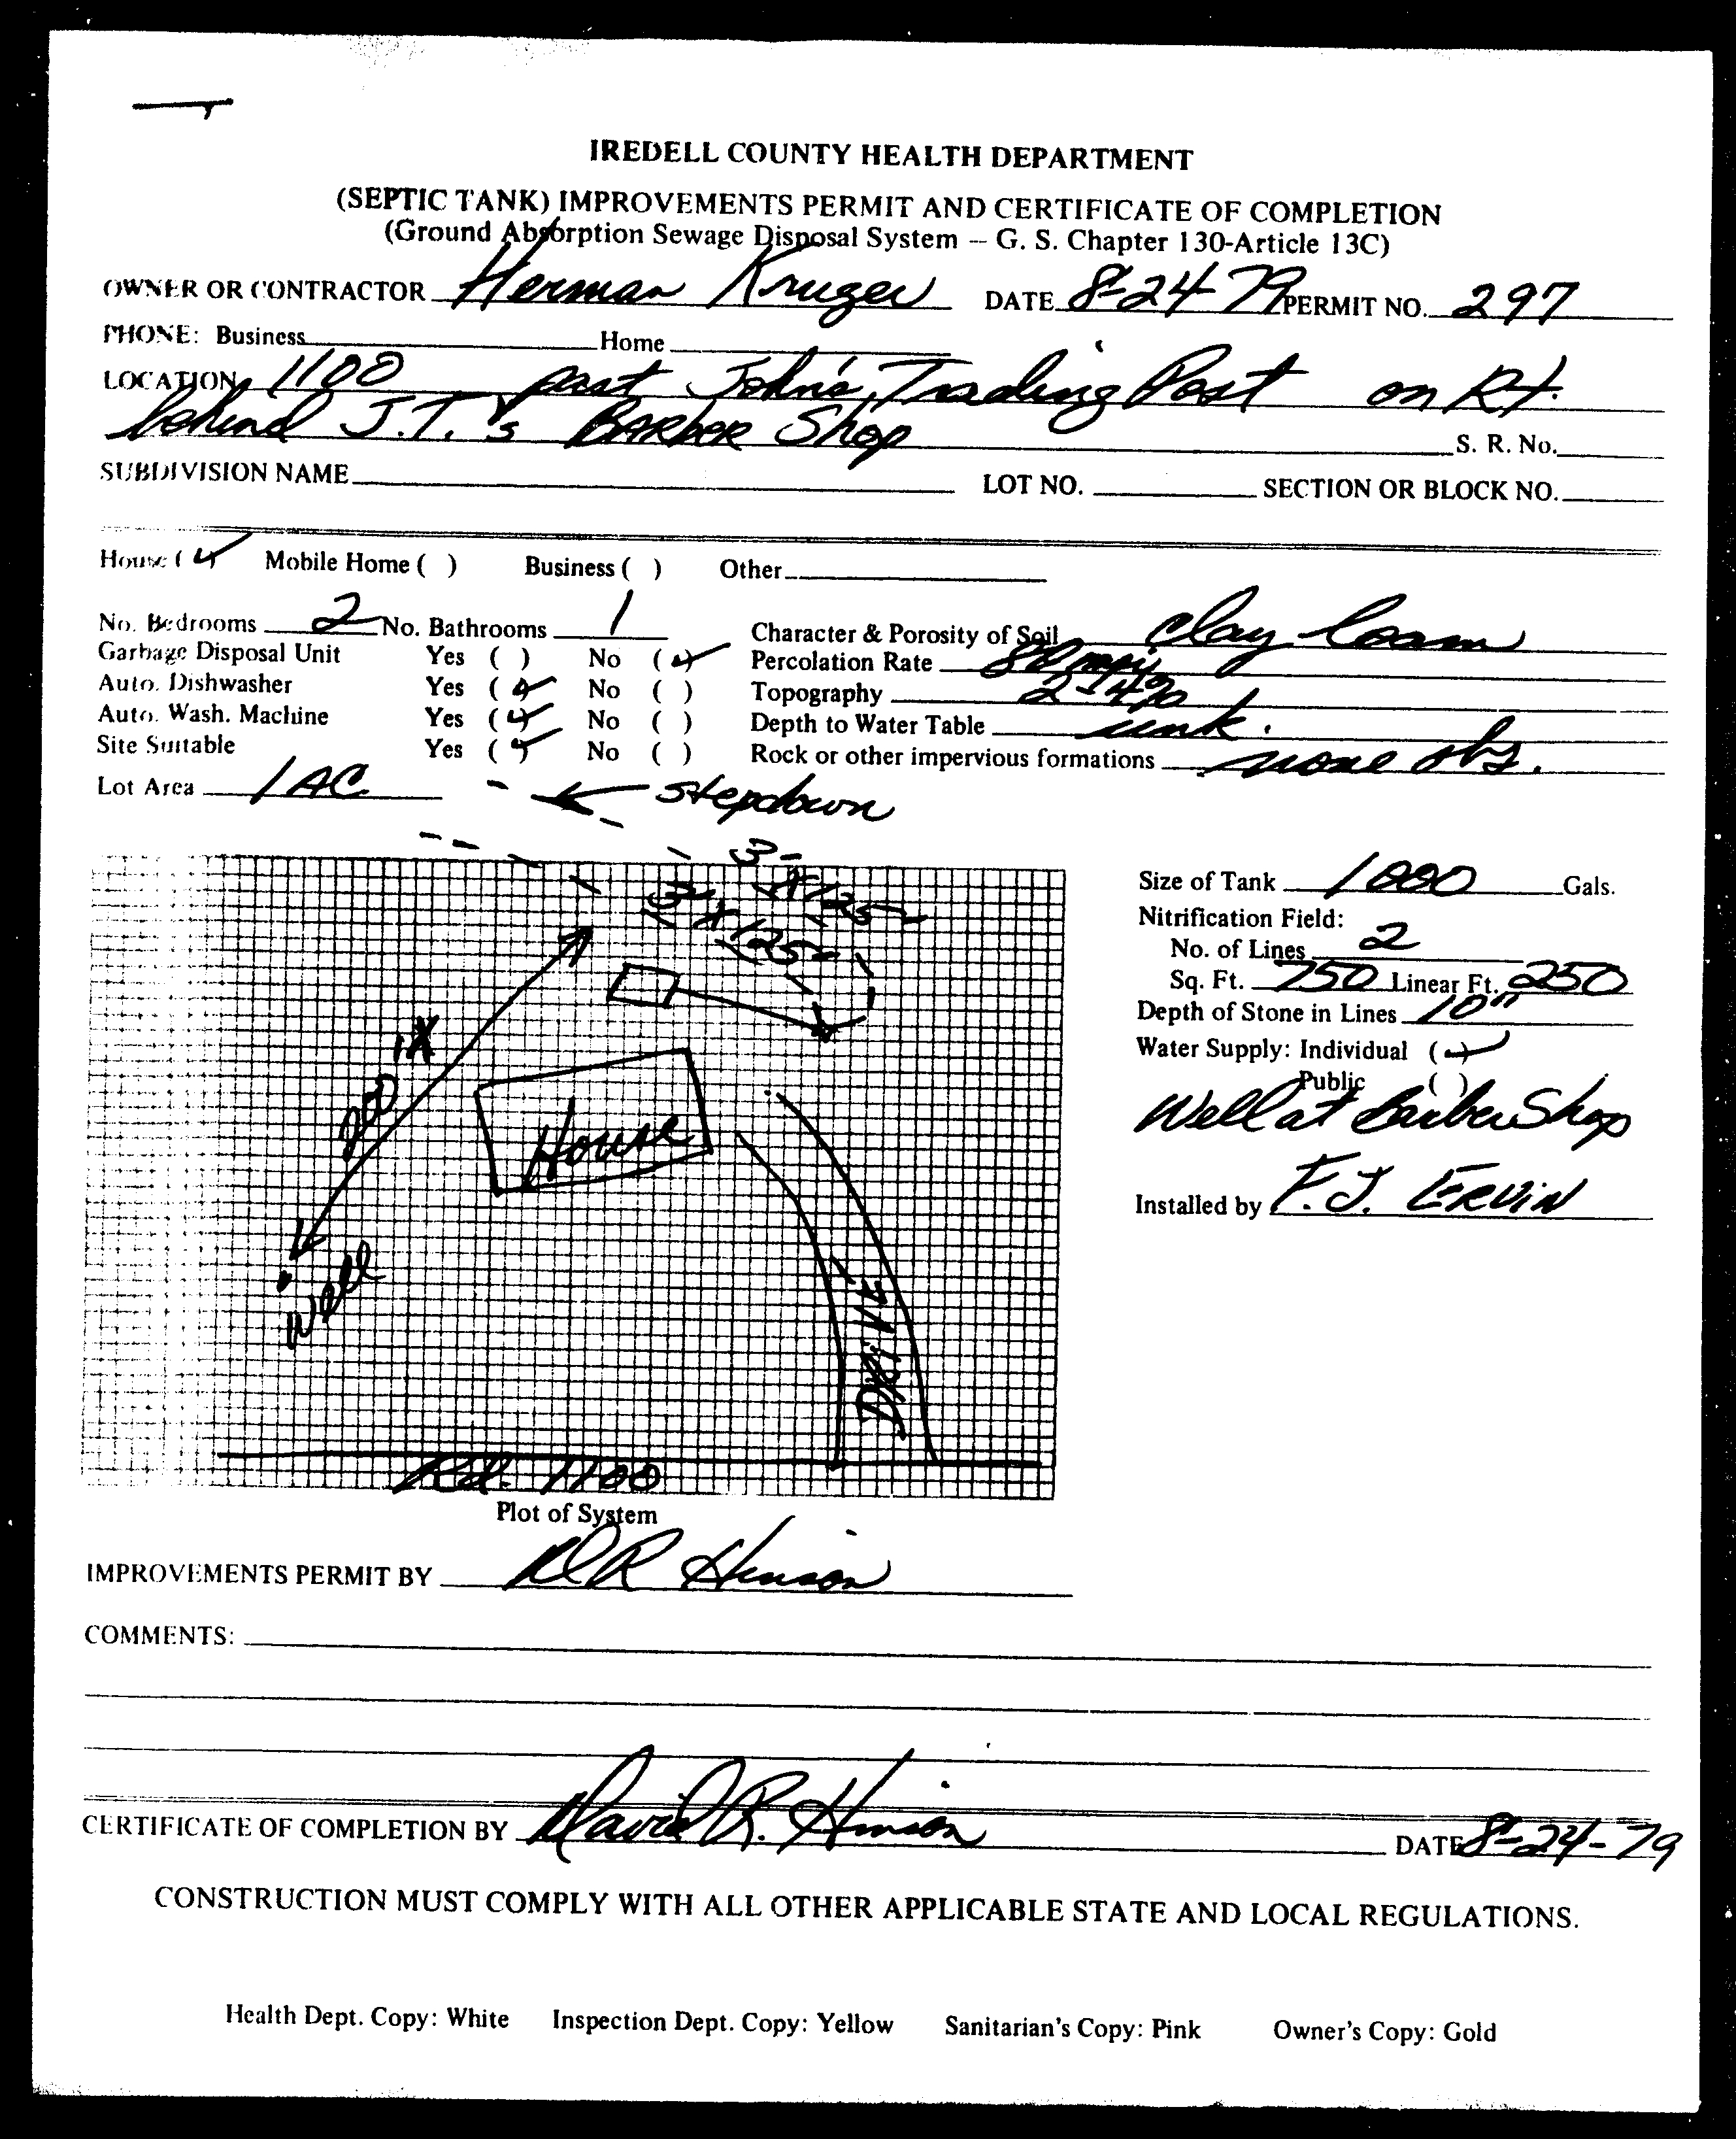 IREDELL COUNTY HEALTH DEPARTMENT
(SEPTIC TANK) IMPROVEMENTS PERMIT AND CERTIFICATE OF COMPLETION
(Ground Absorption Sewage Disposal System – G. S. Chapter 130-Article 13C)
OWNER OR CONTRACTOR Herman Kruger DATE 8-24-79 PERMIT NO. 297
PHONE: Business Home
LOCATION 1100 past John's Trading Post on Rt.
behind J.T.'s BARBER Shop S. R. No.
SUBDIVISION NAME LOT NO. SECTION OR BLOCK NO.
House ( ) Mobile Home ( ) Business ( ) Other
No. Bedrooms 2 No. Bathrooms 1 Character & Porosity of Soil clay loam
Garbage Disposal Unit Yes ( ) No (✓) Percolation Rate 80 mpi
Auto. Dishwasher Yes (✓) No ( ) Topography 2-4%
Auto. Wash. Machine Yes (✓) No ( ) Depth to Water Table unk.
Site Suitable Yes (✓) No ( ) Rock or other impervious formations none obs.
Lot Area 1 AC
stepdown
3 x 125
3 x 125
Size of Tank 1000 Gals.
Nitrification Field:
No. of Lines 2
Sq. Ft. 750 Linear Ft. 250
Depth of Stone in Lines 10"
Water Supply: Individual (✓)
Public ( )
Well at Barber Shop
Installed by F.J. ERVIN
200
House
well
DRIVE
Rd. 1100
Plot of System
IMPROVEMENTS PERMIT BY DR Hinson
COMMENTS:
CERTIFICATE OF COMPLETION BY David R. Hinson DATE 8-24-79
CONSTRUCTION MUST COMPLY WITH ALL OTHER APPLICABLE STATE AND LOCAL REGULATIONS.
Health Dept. Copy: White Inspection Dept. Copy: Yellow Sanitarian's Copy: Pink Owner's Copy: Gold